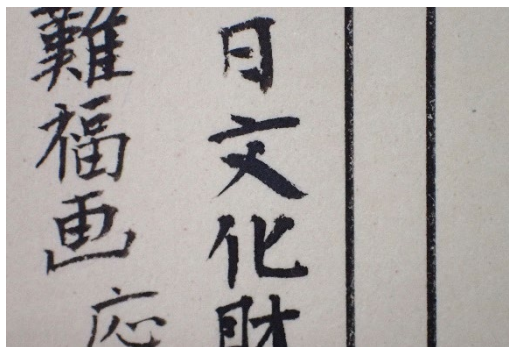 日文化財
難福画」応